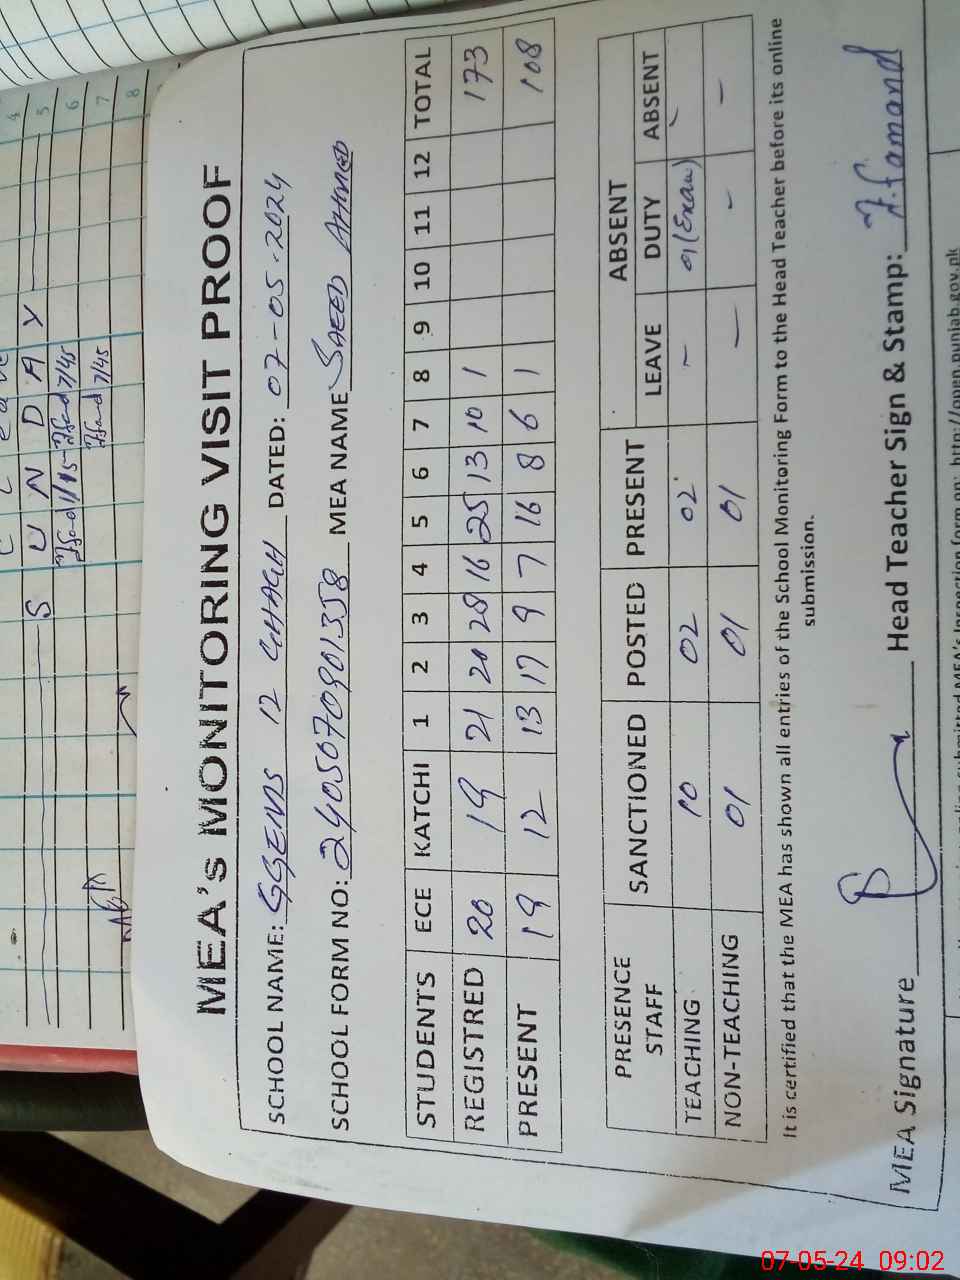 MEA's MONITORING VISIT PROOF
SCHOOL NAME: GGEMS 12 GHAGH DATED: 07-05-2024
SCHOOL FORM NO: MEA NAME SAEED AHMED
STUDENTS ECE KATCHI 1 2 3 4 5 6 7 8 9 10 11 12 TOTAL
REGISTRED 20 19 21 20 28 16 25 13 10 1 173
PRESENT 19 12 13 17 9 7 16 8 6 1 108
PRESENCE STAFF SANCTIONED POSTED PRESENT ABSENT
LEAVE DUTY ABSENT
TEACHING 10 02 02 - 01(Exam) -
NON-TEACHING 01 01 01 - - -
It is certified that the MEA has shown all entries of the School Monitoring Form to the Head Teacher before its online
submission.
MEA Signature Head Teacher Sign & Stamp:
S U N D A Y
4
5
6
7
8
07-05-24 09:02